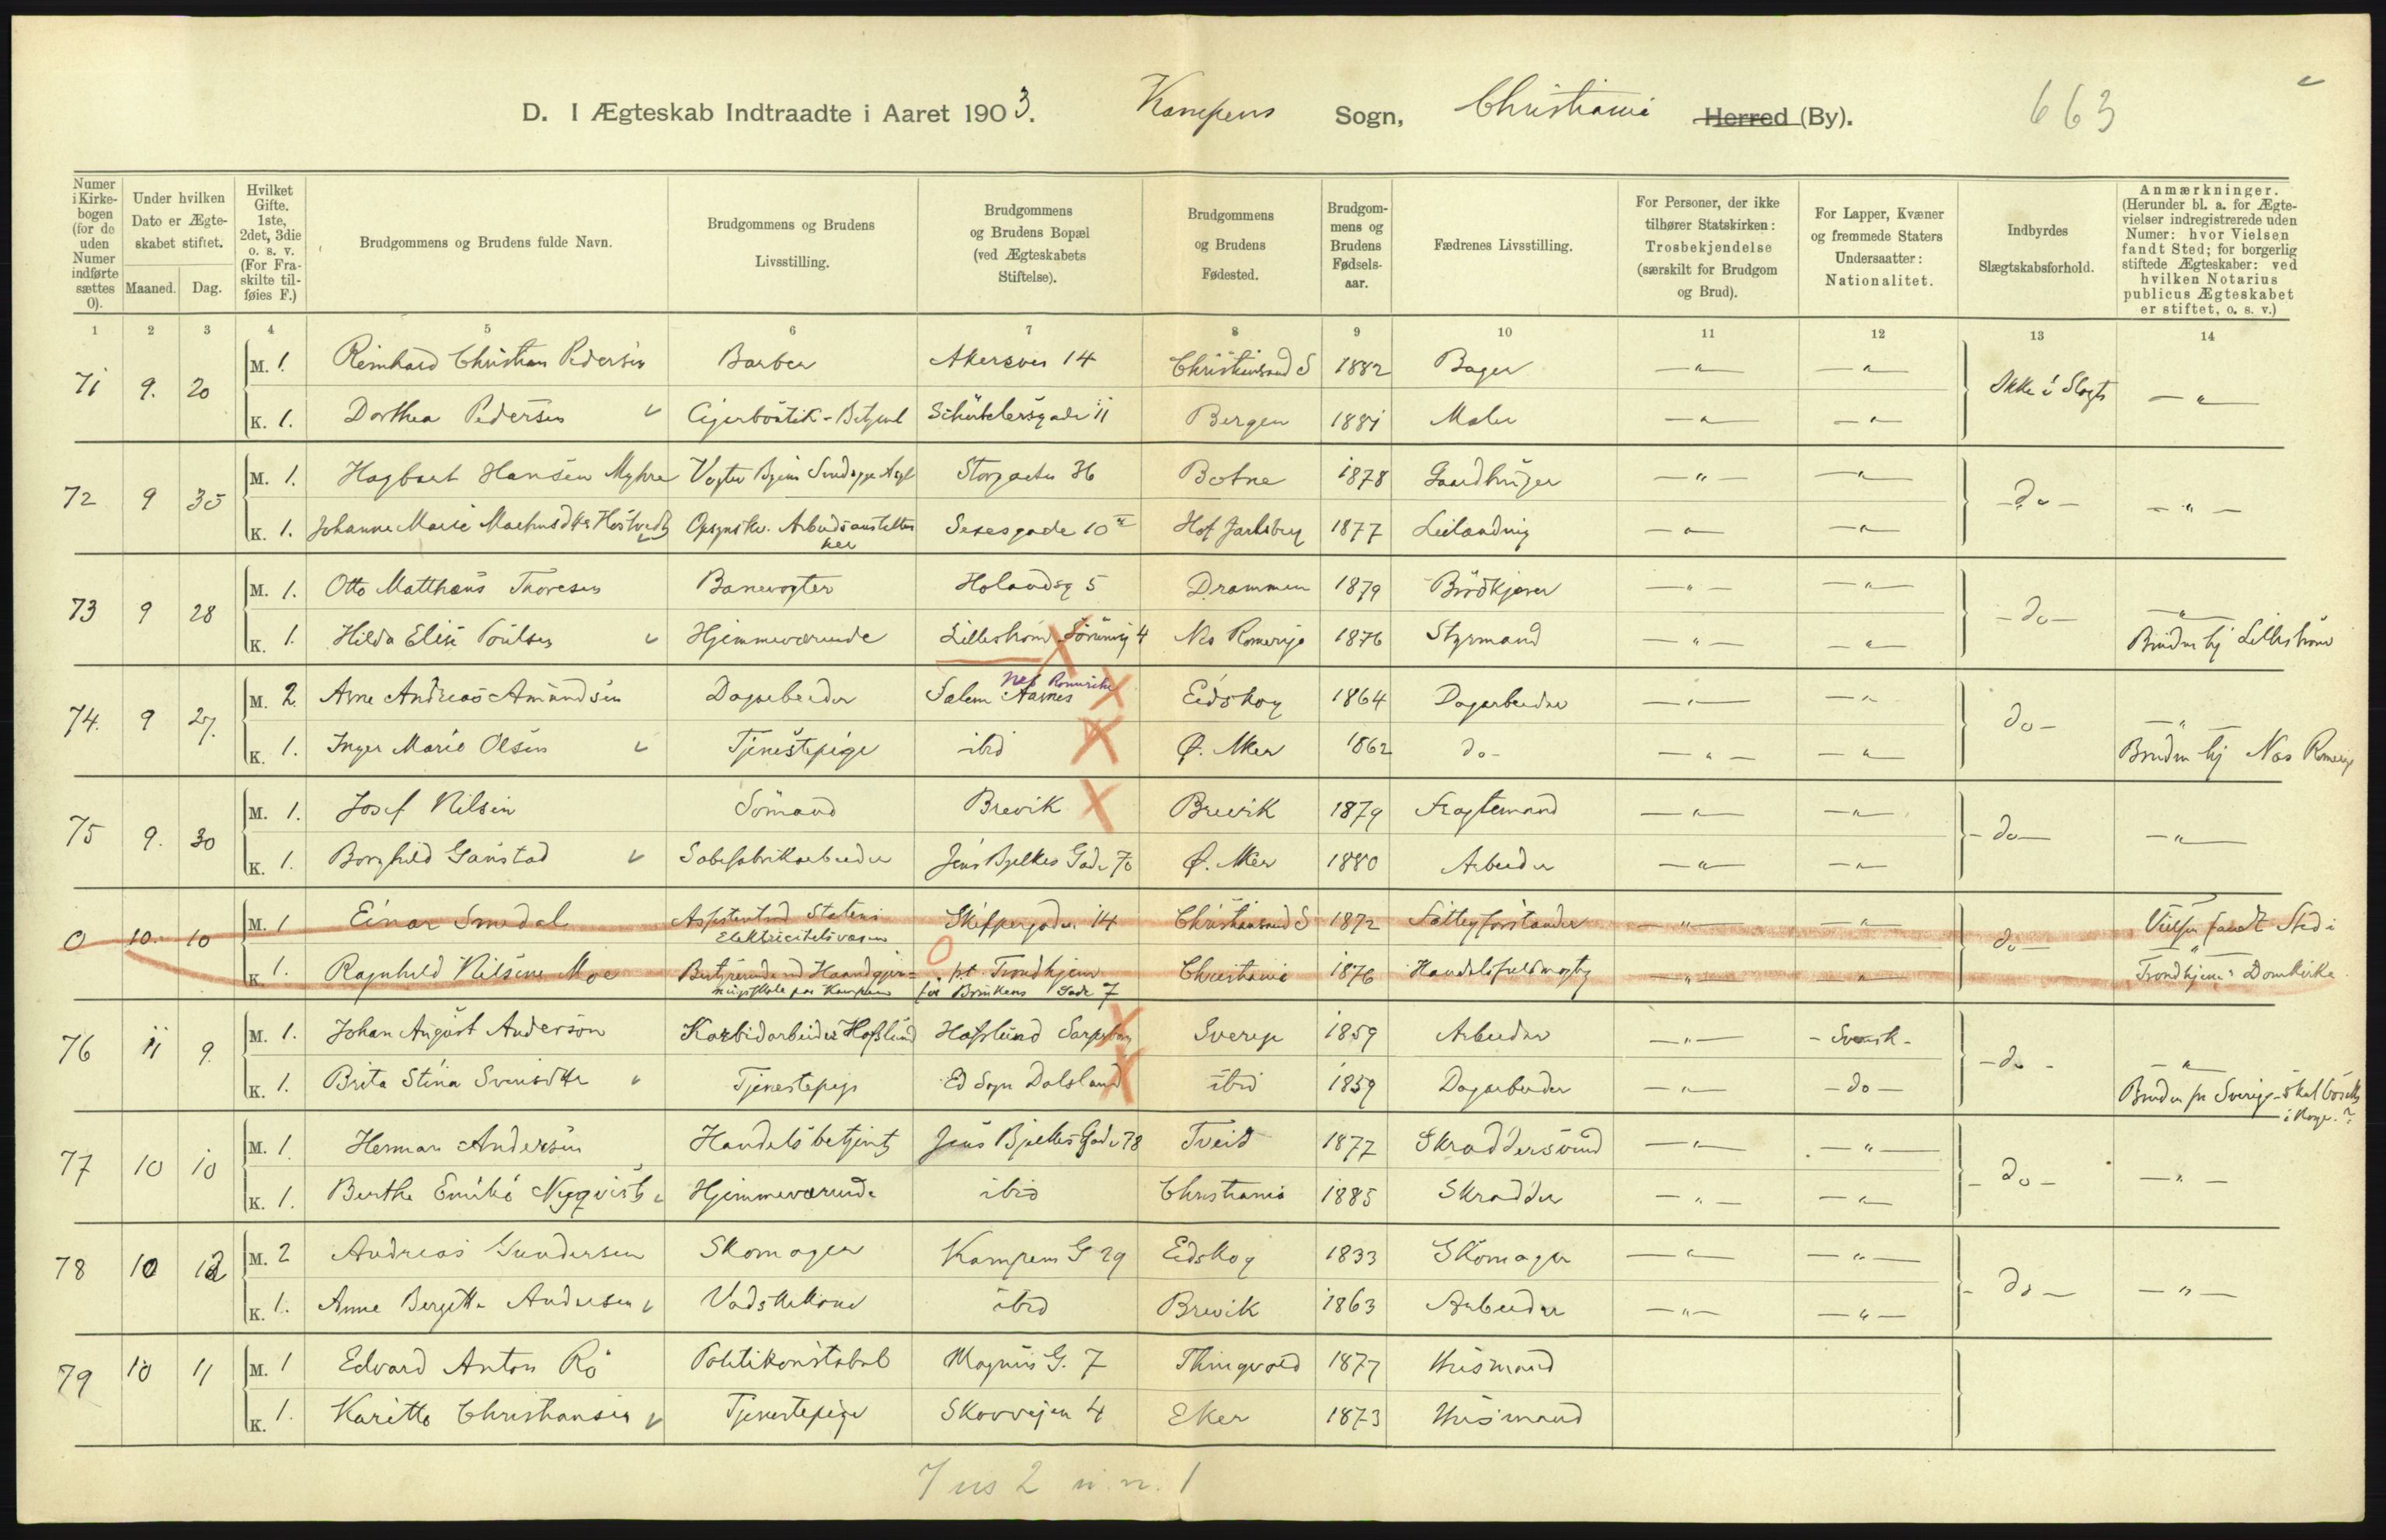 663
D. I Ægteskab Indtraadte i Aaret 1903. Kampens Sogn, Christiania Herred (By).
Numer i Kirkebogen (for de uden Numer indførte sættes 0).
Under hvilken Dato er Ægteskabet stiftet.
Maaned. Dag.
Hvilket Gifte. 1ste, 2det, 3die o. s. v. (For Fraskilte tilføies F.)
Brudgommens og Brudens fulde Navn.
Brudgommens og Brudens Livsstilling.
Brudgommens og Brudens Bopæl (ved Ægteskabets Stiftelse).
Brudgommens og Brudens Fødested.
Brudgommens og Brudens Fødselsaar.
Fædrenes Livsstilling.
For Personer, der ikke tilhører Statskirken: Trosbekjendelse (særskilt for Brudgom og Brud).
For Lapper, Kvæner og fremmede Staters Undersaatter: Nationalitet.
Indbyrdes Slægtskabsforhold.
Anmærkninger. (Herunder bl. a. for Ægtevielser indregistrerede uden Numer: hvor Vielsen fandt Sted; for borgerlig stiftede Ægteskaber: ved hvilken Notarius publicus Ægteskabet er stiftet, o. s. v.)
1 2 3 4 5 6 7 8 9 10 11 12 13 14
71 9. 20 M. 1. Reinhard Christian Pedersen Barber Akersvei 14 Christiansand S 1882 Bager —"— —"— Ikke i Slegt —"—
K. 1. Dorthea Pedersen Cigarboutik-Betjent Schübelersgade 11 Bergen 1881 Maler —"— —"—
72 9 30 M. 1. Hagbart Hansen Myhre Vogter Byens Storgaden 36 Botne 1878 Gaardbruger —"— —"— —do— —"—
K. 1. Johanne Marie Opsynskv. Arbeidsanstalten Sexesgade 10 Hof Jarlsberg 1877 Leilænding —"— —"—
73 9 28 M. 1. Otto Matthæus Thoresen Banevogter Holandsg 5 Drammen 1879 Bødkjører —"— —"— —do— —"—
K. 1. Hilda Elise Poulsen Hjemmeværende Lillestrøm 4 Nes Romerige 1876 Styrmand —"— —"— Bruden hj Lillestrøm
74. 9 27. M. 2. Arne Andreas Amundsen Dagarbeider Salem Aarnes Nes Romerike Eidskog 1864 Dagarbeider —"— —"— do— —"—
K. 1. Inger Marie Olsen Tjenestepige ibid Ø. Aker 1862 do— —"— —"— Bruden hj Nes Romerige
75 9. 30 M. 1. Josef Nilsen Sømand Brevik Brevik 1879 Fragtemand —"— —"— —do— —"—
K. 1. Borghild Ganstad Sæbefabrikarbeider Jens Bjelkes Gade 70 Ø. Aker 1880 Arbeider —"— —"—
0 10. 10 M. 1 Einar Smedal Assistent ved Statens Elektricitetsvæsen Skippergaden 14 Christiansand S 1872 —"— —"— do— Vielsen fandt Sted i
K. 1. Ragnhild Nilsine Moe Bestyrerinde ved Haandgjerningsskole paa Kampen pt Trondhjem før Brinkens Gade 7 Christiania 1876 Handelsfuldmægtig —"— —"— Trondhjems Domkirke
76 11 9. M. 1. Johan August Anderson Karbidarbeider Hafslund Hafslund Sarpsborg Sverige 1859 Arbeider —"— —Svensk— —do— —"—
K. 1. Brita Stina Svensdtr Tjenestepige Ed Sogn Dalsland ibid 1859 Dagarbeider —"— —do— Bruden fra Sverige—skal bosætte i Norge.?
77 10 10 M. 1. Herman Andersen Handelsbetjent Jens Bjelkes Gade 78 Tveid 1877 Skræddersvend —"— —"— —do— —"—
K. 1. Berthe Emilie Nyqvist Hjemmeværende ibid Christiania 1885 Skrædder —"— —"—
78 10 12 M. 2 Andreas Gundersen Skomager Kampens G 29 Eidskog 1833 Skomager —"— —"— —do— —"—
K. 1. Anne Bergitte Andersen Vadskekone ibid Brevik 1863 Arbeider —"— —"—
79 10 11 M. 1 Edvard Anton Rö Politikonstabel Magnus G. 7 Thingvold 1877 Husmand
K. 1. Karitte Christiansen Tjenestepige Skovvejen 4 Eker 1873 Husmand
7 us 2 u.n. 1